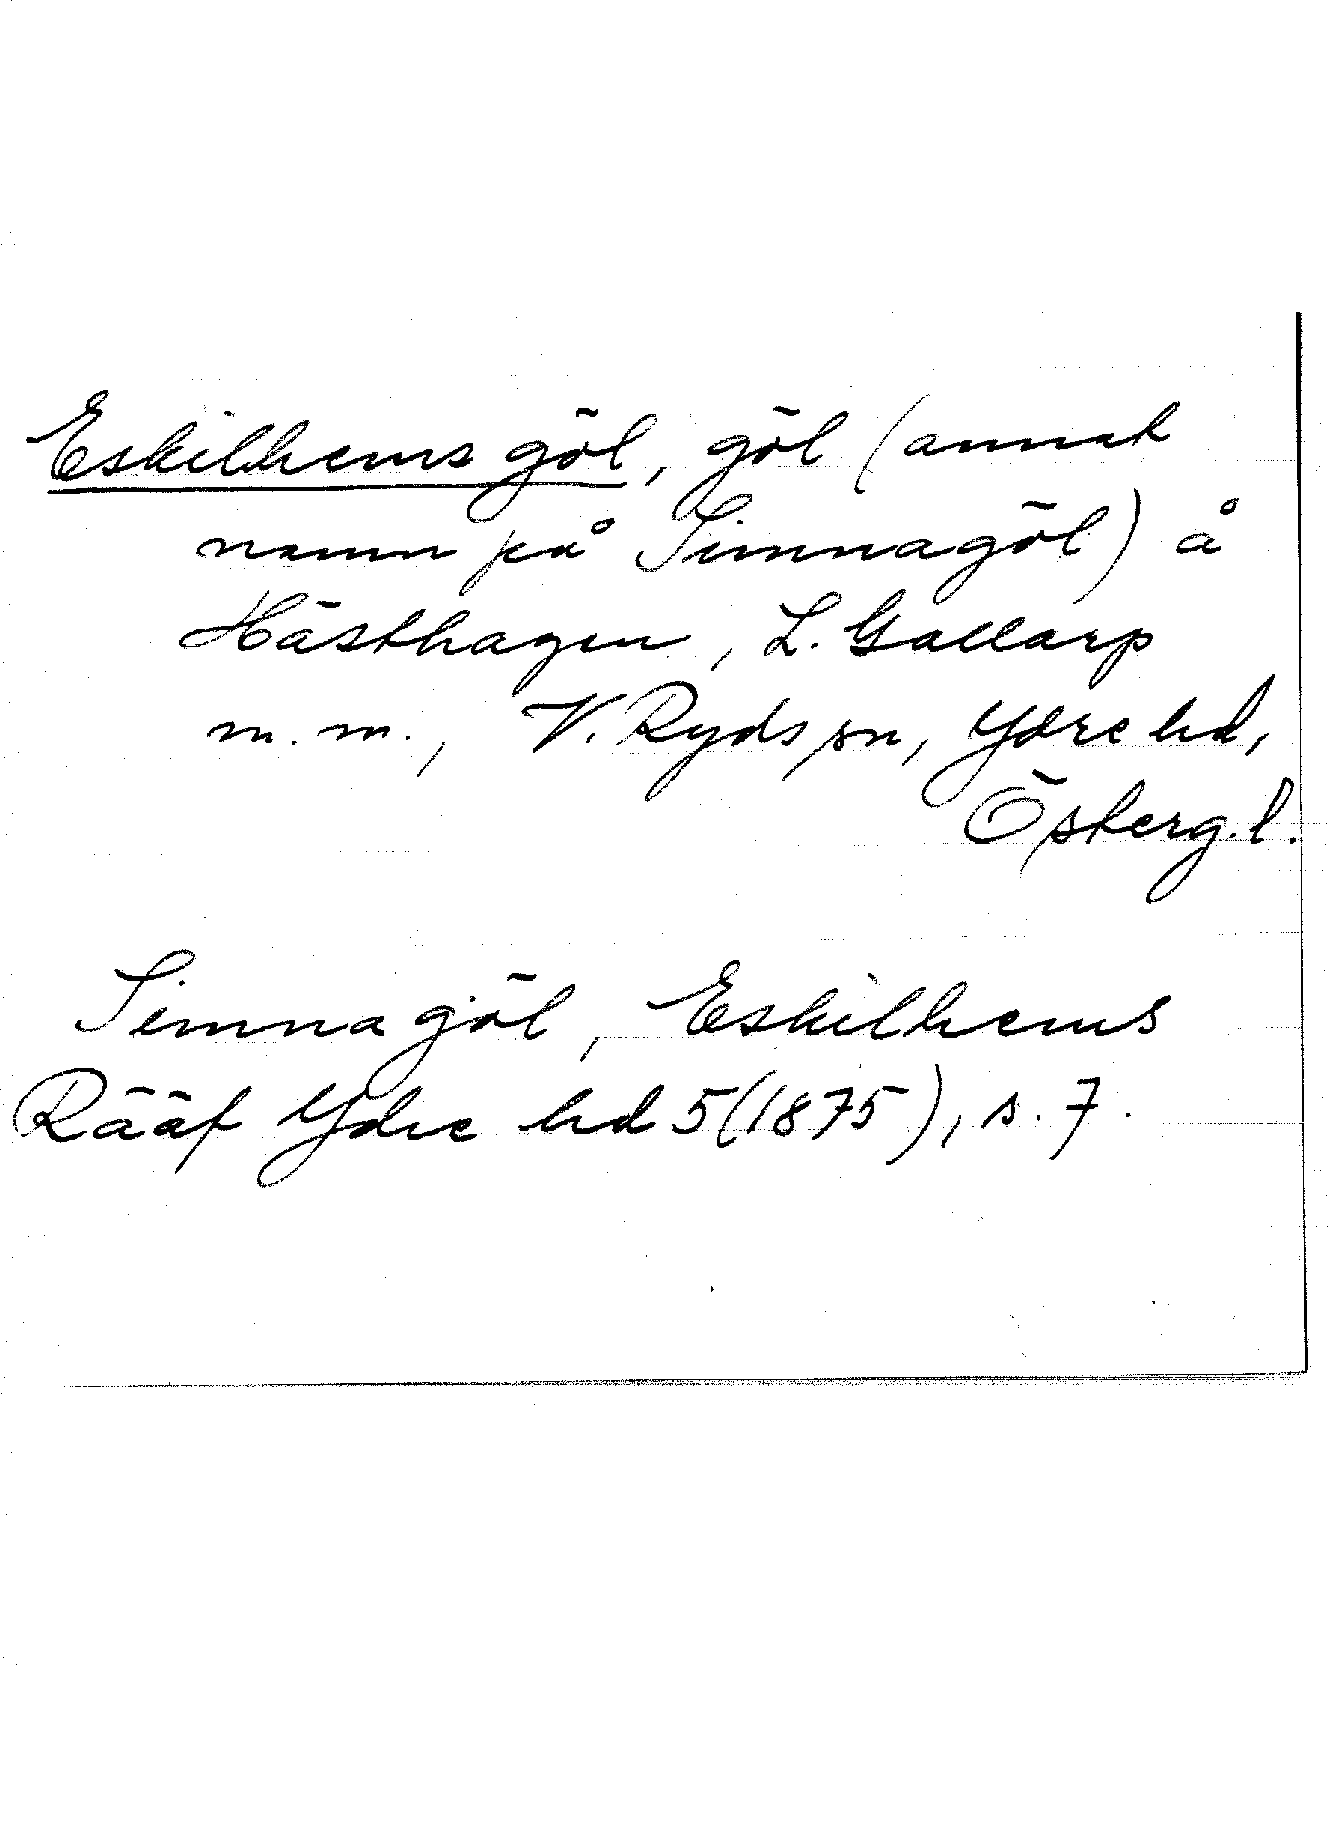 Eskilhems göl, göl (annat
namn på Simnagöl) å
Hästhagen, L. Gallarp
m. m., V. Ryds sn, Ydre hd,
Österg. l.
Simnagöl, Eskilhems
Rääf Ydre hd 5 (1875), s. 7.